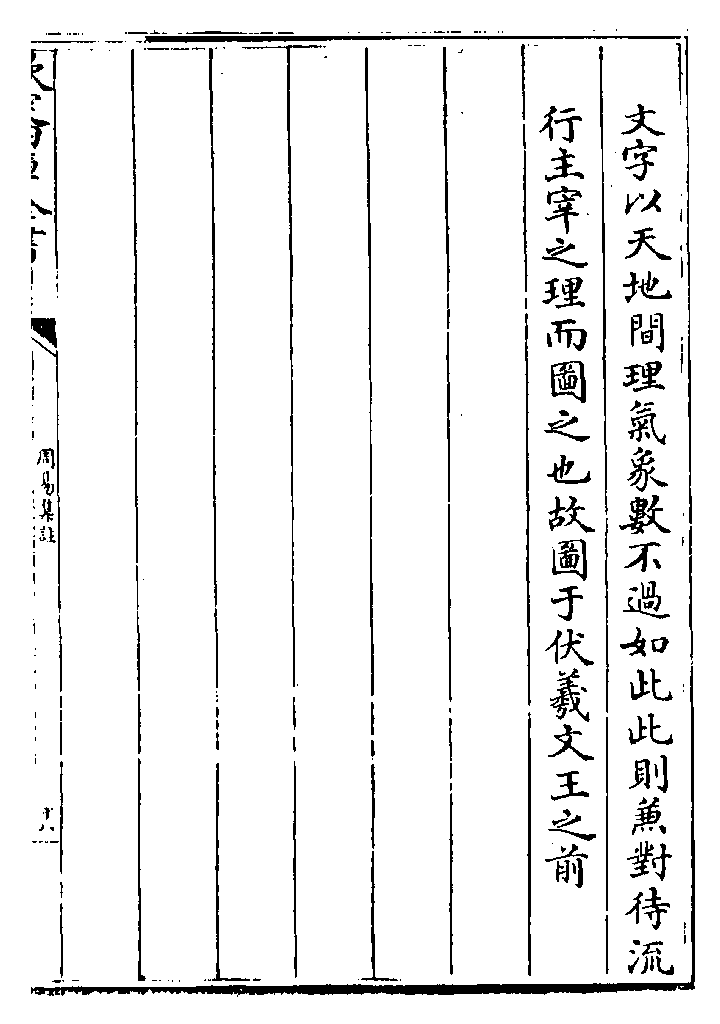 文字以天地間理氣象數不過如此此則兼對待流
行主宰之理而圖之也故圖于伏羲文王之前
周易集註